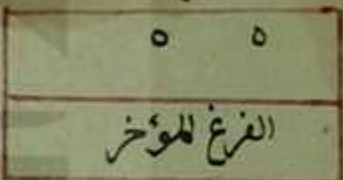 الفرغ المؤخر